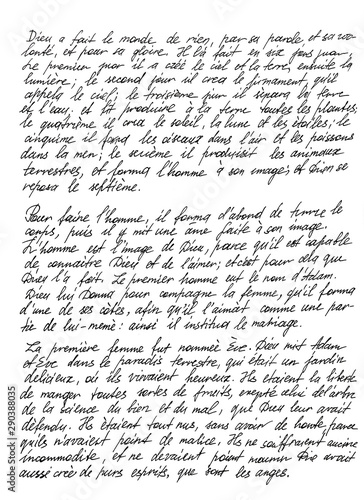 Dieu a fait le monde de rien, par sa parole et sa vo-
lonté, et pour sa gloire. Il l'a fait en six fois jour.
Le premier jour il a créé le ciel et la terre, ensuite la
lumière; le second jour il crea le firmament, qu'il
appela le ciel; le troisième jour il sépara la terre
et l'eau, et fit produire à la terre toutes les plantes;
le quatrième il crea le soleil, la lune et les étoiles; le
cinquième il forma les oiseaux dans l'air et les poissons
dans la mer; le sixième il produisit les animaux
terrestres, et forma l'homme à son image; et Dieu se
reposa le septième.
Pour faire l'homme, il forma d'abord de terre le
corps, puis il y mit une âme faite à son image.
L'homme est l'image de Dieu, parce qu'il est capable
de connaître Dieu et de l'aimer; et c'est pour cela que
Dieu l'a fait. Le premier homme eut le nom d'Adam.
Dieu lui donna pour compagne la femme, qu'il forma
d'une de ses côtes, afin qu'il l'aimât comme une par-
tie de lui-même: ainsi il institua le mariage.
La première femme fut nommée Eve. Dieu mit Adam
et Eve dans le paradis terrestre, qui était un jardin
délicieux, où ils vivaient heureux. Ils étaient la liberté
de manger toutes sortes de fruits, excepté celui de l'arbre
de la science du bien et du mal, que Dieu leur avait
défendu. Ils étaient tout nus, sans avoir de honte, parce
qu'ils n'avaient point de malice. Ils ne souffraient aucune
incommodité, et ne devaient point mourir. Dieu avait
aussi créé de purs esprits, que sont les anges.
Adobe Stock | #290388035